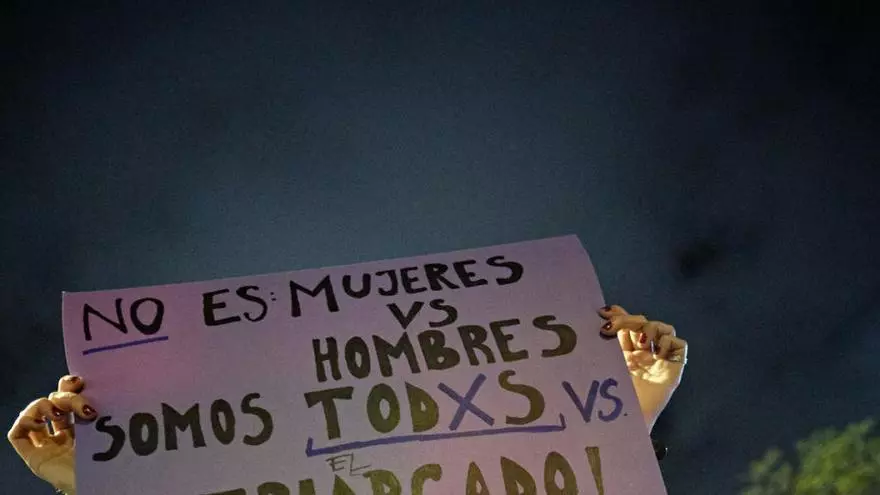 NO ES: MUJERES
VS
HOMBRES
SOMOS TODXS VS.
EL
TRIARCADO!